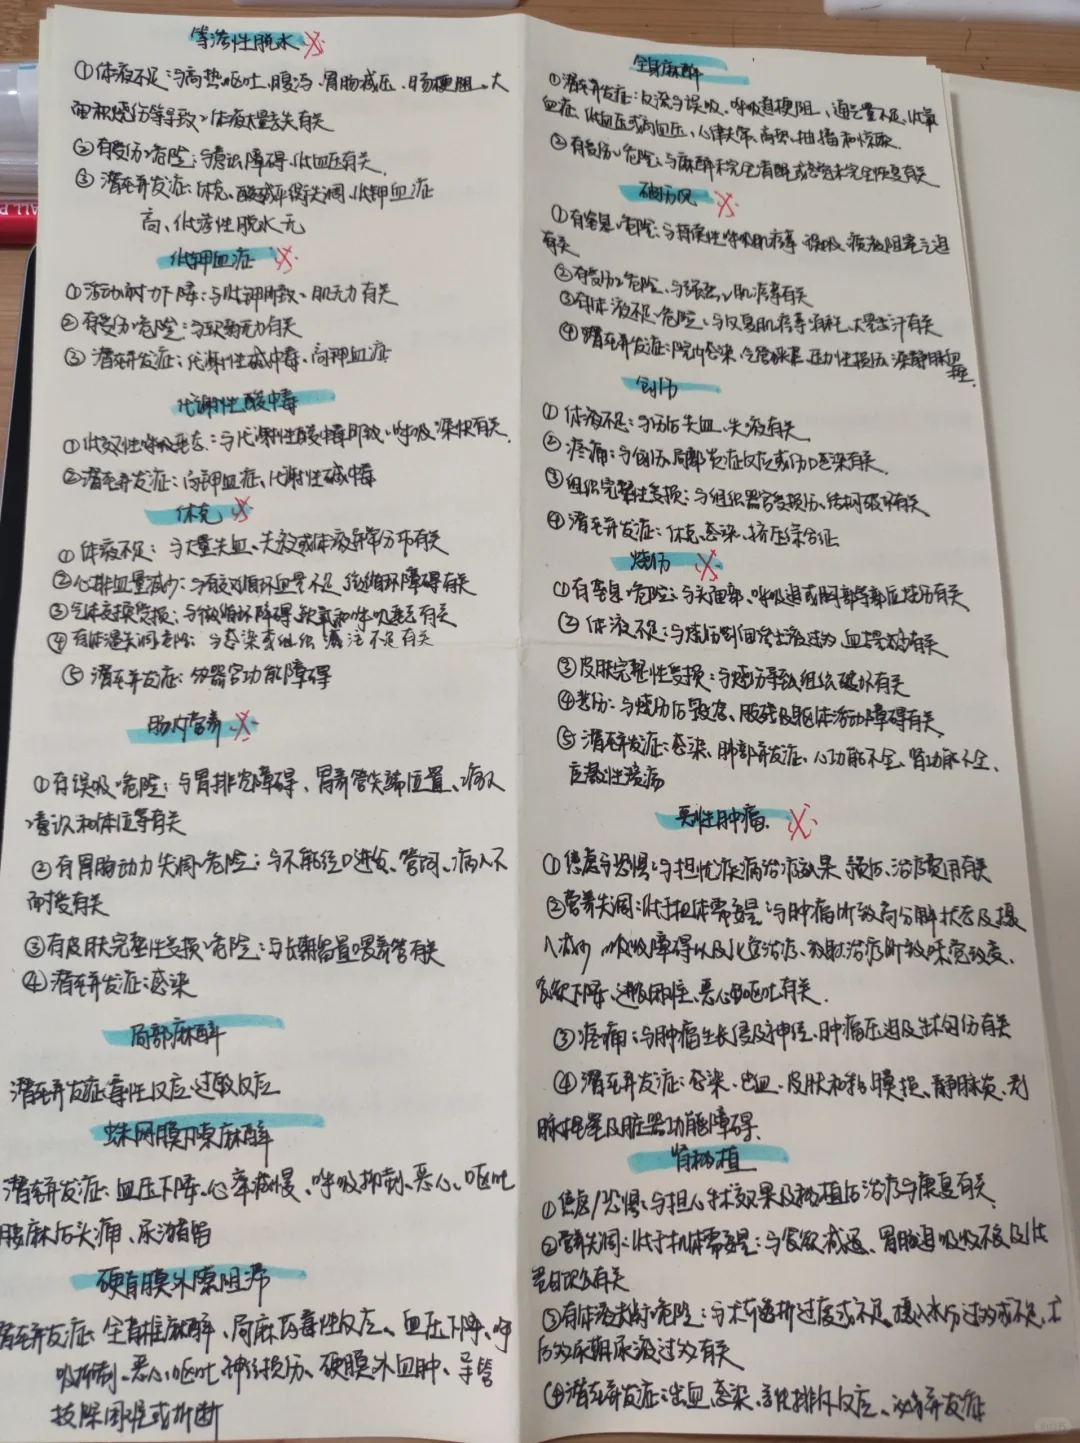 等渗性脱水
①体液不足:与高热呕吐、腹泻、胃肠减压、肠梗阻、大
面积烧伤等导致的体液大量丢失有关
②有受伤的危险:与意识障碍、低血压有关
③潜在并发症:休克、酸碱平衡失调、低钾血症
高、低渗性脱水无
低钾血症
①活动耐力下降:与低钾所致的肌无力有关
②有受伤的危险:与软弱无力有关
③潜在并发症:代谢性碱中毒、高钾血症
代谢性酸中毒
①低效性呼吸型态:与代谢性酸中毒所致的呼吸深快有关
②潜在并发症:高钾血症、代谢性碱中毒
休克
①体液不足:与大量失血、失液或体液异常分布有关
②心排血量减少:与有效循环血量不足、微循环障碍有关
③气体交换受损:与微循环障碍、缺氧和呼吸型态有关
④有体温失调的危险:与感染或组织灌注不足有关
⑤潜在并发症:多器官功能障碍
肠内营养
①有误吸的危险:与胃排空障碍、胃养管尖端位置、病人
意识和体位等有关
②有胃肠动力失调的危险:与不能经口进食、管饲、病人不
耐受有关
③有皮肤完整性受损的危险:与长期留置喂养管有关
④潜在并发症:感染
局部麻醉
潜在并发症:毒性反应、过敏反应
蛛网膜下隙麻醉
潜在并发症:血压下降、心率减慢、呼吸抑制、恶心、呕吐
腰麻后头痛、尿潴留
硬脊膜外隙阻滞
潜在并发症:全脊椎麻醉、局麻药毒性反应、血压下降、呼
吸抑制、恶心、呕吐、神经损伤、硬膜外血肿、导管
拔除困难或折断
全身麻醉
①潜在并发症:反流与误吸、呼吸道梗阻、通气量不足、低氧
血症、低血压或高血压、心律失常、高热、抽搐和惊厥
②有受伤的危险:与麻醉未完全清醒或感觉未完全恢复有关
破伤风
①有窒息的危险:与持续性呼吸肌痉挛、误吸、痰液阻塞气道
有关
②有受伤的危险:与强烈的肌痉挛有关
③有体液不足的危险:与反复肌痉挛消耗、大量出汗有关
④潜在并发症:院内感染、尿潴留、压力性损伤、深静脉血
栓
创伤
①体液不足:与伤后失血、失液有关
②疼痛:与创伤、局部炎症反应或伤口感染有关
③组织完整性受损:与组织器官受损伤、结构破坏有关
④潜在并发症:休克、感染、挤压综合征
烧伤
①有窒息的危险:与头面部、呼吸道或胸部等部位烧伤有关
②体液不足:与烧伤创面渗出液过多、血容量减少有关
③皮肤完整性受损:与烧伤导致组织破坏有关
④悲伤:与烧伤后毁容、肢残及躯体活动障碍有关
⑤潜在并发症:感染、肺部并发症、心功能不全、肾功能不全、
应激性溃疡
恶性肿瘤
①焦虑与恐惧:与担忧疾病治疗效果、预后、治疗费用有关
②营养失调:低于机体需要量:与肿瘤所致高分解状态及摄
入减少、吸收障碍以及化学治疗、放射治疗所致味觉改变、
食欲下降、进食困难、恶心呕吐有关
③疼痛:与肿瘤生长侵及神经、肿瘤压迫及手术创伤有关
④潜在并发症:感染、出血、皮肤和黏膜损、静脉炎、静
脉栓塞及脏器功能障碍
肾移植
①焦虑/恐惧:与担心手术效果及移植后治疗与康复有关
②营养失调:低于机体需要量:与食欲减退、胃肠道吸收不良及低
蛋白饮食有关
③有体液失衡的危险:与术前透析过度或不足、摄入水分过多或不足、术
后的多尿期尿液过多有关
④潜在并发症:出血、感染、急性排斥反应、泌尿并发症
小红书